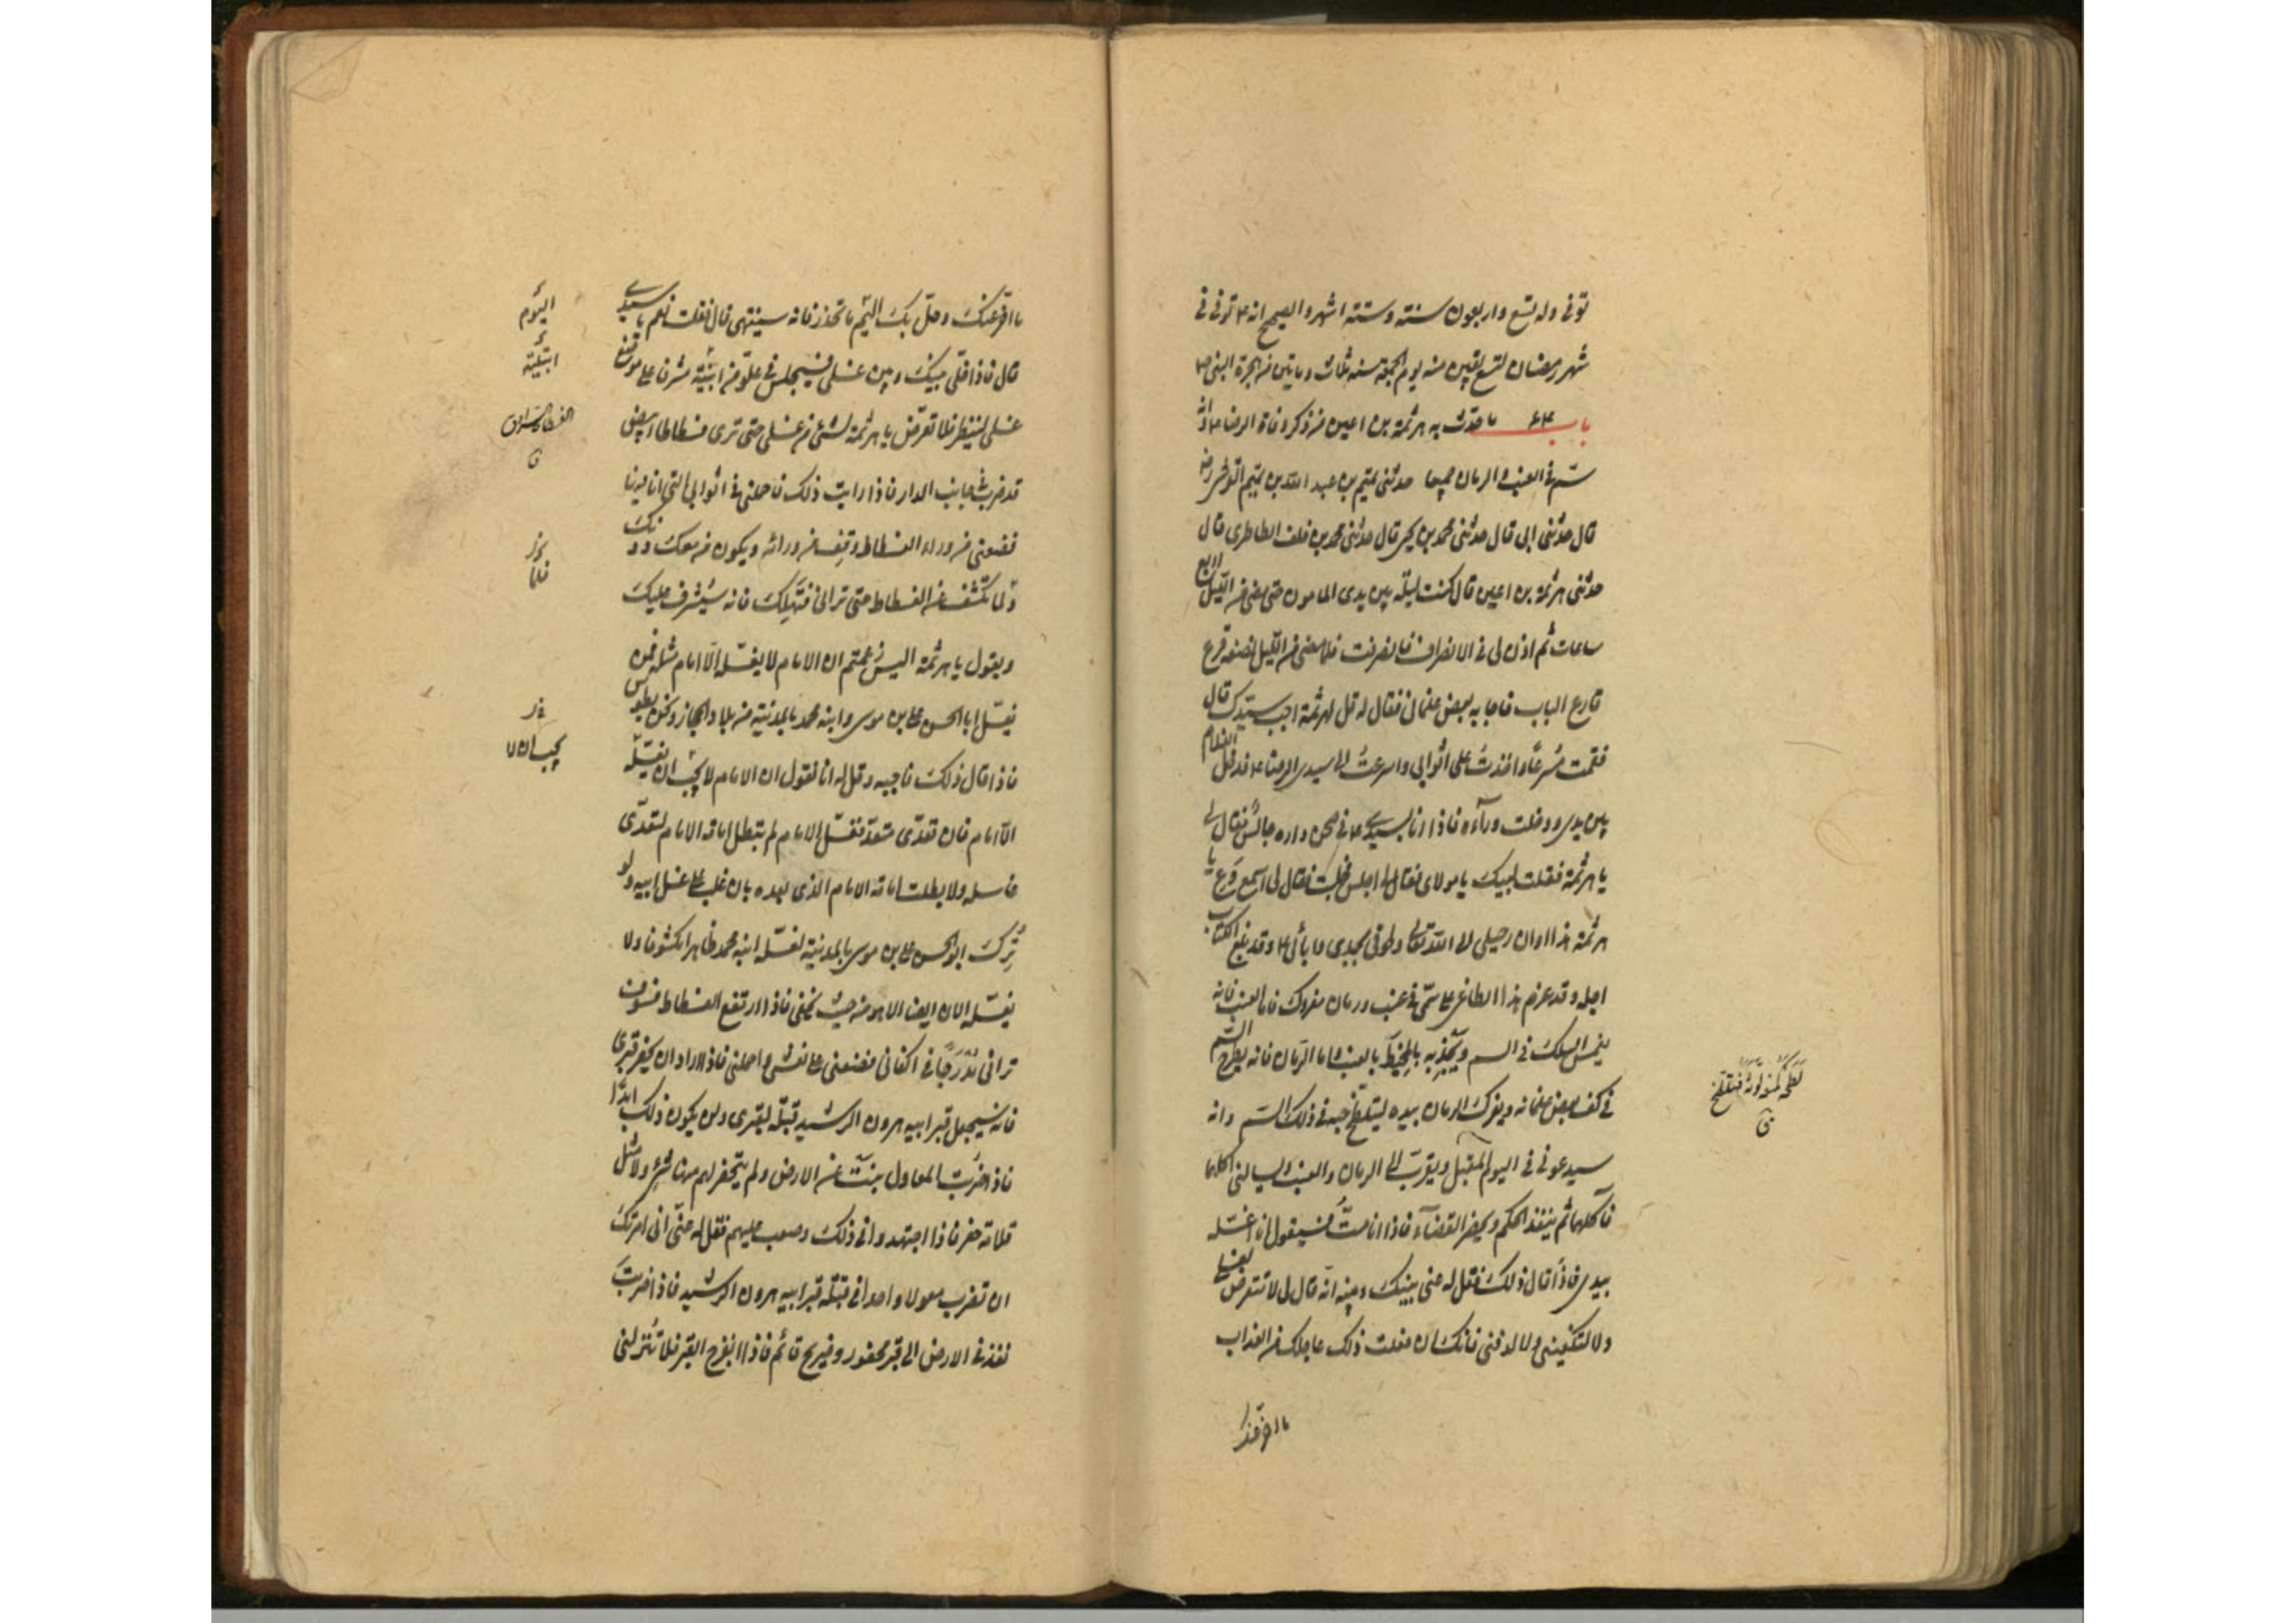 توفى وله تسع واربعون سنته وستته اشهر والصحيح انه ع توفى فى
شهر رمضان لتسع بقين منه يوم الجمعة سنه ثلاث وماتين من هجرة النبى ص
باب ۶۴ ما حدّث به هرثمة بن اعين من ذكر وفاة الرضا ع وانه
سمّ فى العنب والرمان جميعا حدثنى تميم بن عبد الله بن تميم القرشى رض
قال حدثنى ابى قال حدثنى محمد بن يحيى قال حدثنى محمد بن خلف الطاطرى قال
حدثنى هرثمة بن اعين قال كنت ليلة بين يدى المامون حتى مضى من الليل اربع
ساعات ثم اذن لى فى الانصراف فانصرفت فلما مضى من الليل نصفه قرع
قارع الباب فاجابه بعض غلمانى فقال له قل لهرثمة اجب سيدك قال
فقمت مُسرعًا واخذتُ على اثوابى واسرعتُ الى سيدى الرضا ع فدخل الغلام
بين يدى ودخلت وراءه فاذا انا بسيدى ع فى صحن داره جالسٌ فقال لى
يا هرثمة فقلت لبيك يا مولاى فقال لى اجلس فجلست فقال لى اسمع وَعِ يا
هرثمة هذا اوان رحيلى الى الله تعالى ولحوقى بجدى وآبائى ع وقد بلغ الكتاب
اجله وقد عزم هذا الطاغى على سمّى فى عنب ورمان مفروك فاما العنب فانه
يغمس السلك فى السم ويجذبه بالخيط بالعنب واما الرمان فانه يطرح السّم
فى كف بعض غلمانه ويفرك الرمان بيده ليتلطّخ حبه فى ذلك السّم وانه
سيدعونى فى اليوم المقبل ويقرب الى الرمان والعنب ويسالنى اكلهما
فآكلهما ثم ينفذ الحكم ويحضر القضاء فاذا انا متُّ فسيقول انا اغسّله
بيدى فاذا قال ذلك فقل له عنى بينك وبينه انّه قال لى لا تتعرض لغسلى
ولا لتكفينى ولا لدفنى فانك ان فعلت ذلك عاجلك من العذاب
ما اخّر عنك
ما اخّر عنك وحلّ بك اليّم ما تحذر فانه سينتهى قال فقلت نعم يا سيدى
قال فاذا خلّى بينك وبين غسلى فسيجلس فى علوّ من ابنيته مشرفا على موضع
غسلى لينظر فلا تعرّض يا هرثمة لشئ من غسلى حتى ترى فسطاطا ابيض
قد ضرب فى جانب الدار فاذا رايت ذلك فاحملنى فى اثوابى التى انا فيها
فضعنى من وراء الفسطاط وقف من ورائه ويكون من معك دونك
ولا تكشف عن الفسطاط حتى ترانى فتهلك فانه سيُشرف عليك
ويقول يا هرثمة اليس زعمتم ان الامام لا يغسّله الّا امام مثله فمن
يغسّل ابا الحسن على بن موسى وابنه محمد بالمدينة من بلاد الحجاز ونحن بطوس
فاذا قال ذلك فاجبه وقل له انا نقول ان الامام لا يجب ان يغسّله
الّا امام فان تعدّى متعدّ فغسّل الامام لم يبطل امامة الامام لتعدّى
غاسله ولا بطلت امامة الامام الذى بعده بان غلب على غسل ابيه ولو
تُرِك ابو الحسن على بن موسى بالمدينة لغسّله ابنه محمد ظاهرا مكشوفا ولا
يغسّله الان ايضا الا هو من حيث يخفى فاذا ارتفع الفسطاط فسوف
ترانى مُدْرَجًا فى اكفانى فضعنى على نعشى واحملنى فاذا اراد ان يحفر قبرى
فانه سيجعل قبر ابيه هرون الرشيد قبلة لقبرى ولن يكون ذلك ابدًا
فاذا ضُربت المعاول ينبّ عن الارض ولم يتحفر لهم منها شئ ولا مثل
قلامة ظفر فاذا اجتهدوا فى ذلك وصعب عليهم فقل له عنّى انى امرتك
ان تضرب معولا واحدا فى قبلة قبر ابيه هرون الرشيد فاذا ضربت
نفذ فى الارض الى قبر محفور وضريح قائم فاذا انفرج القبر فلا تُنزلنى
اليَوم
ابنيته
الفسطاط
فلما
يجب ان لا